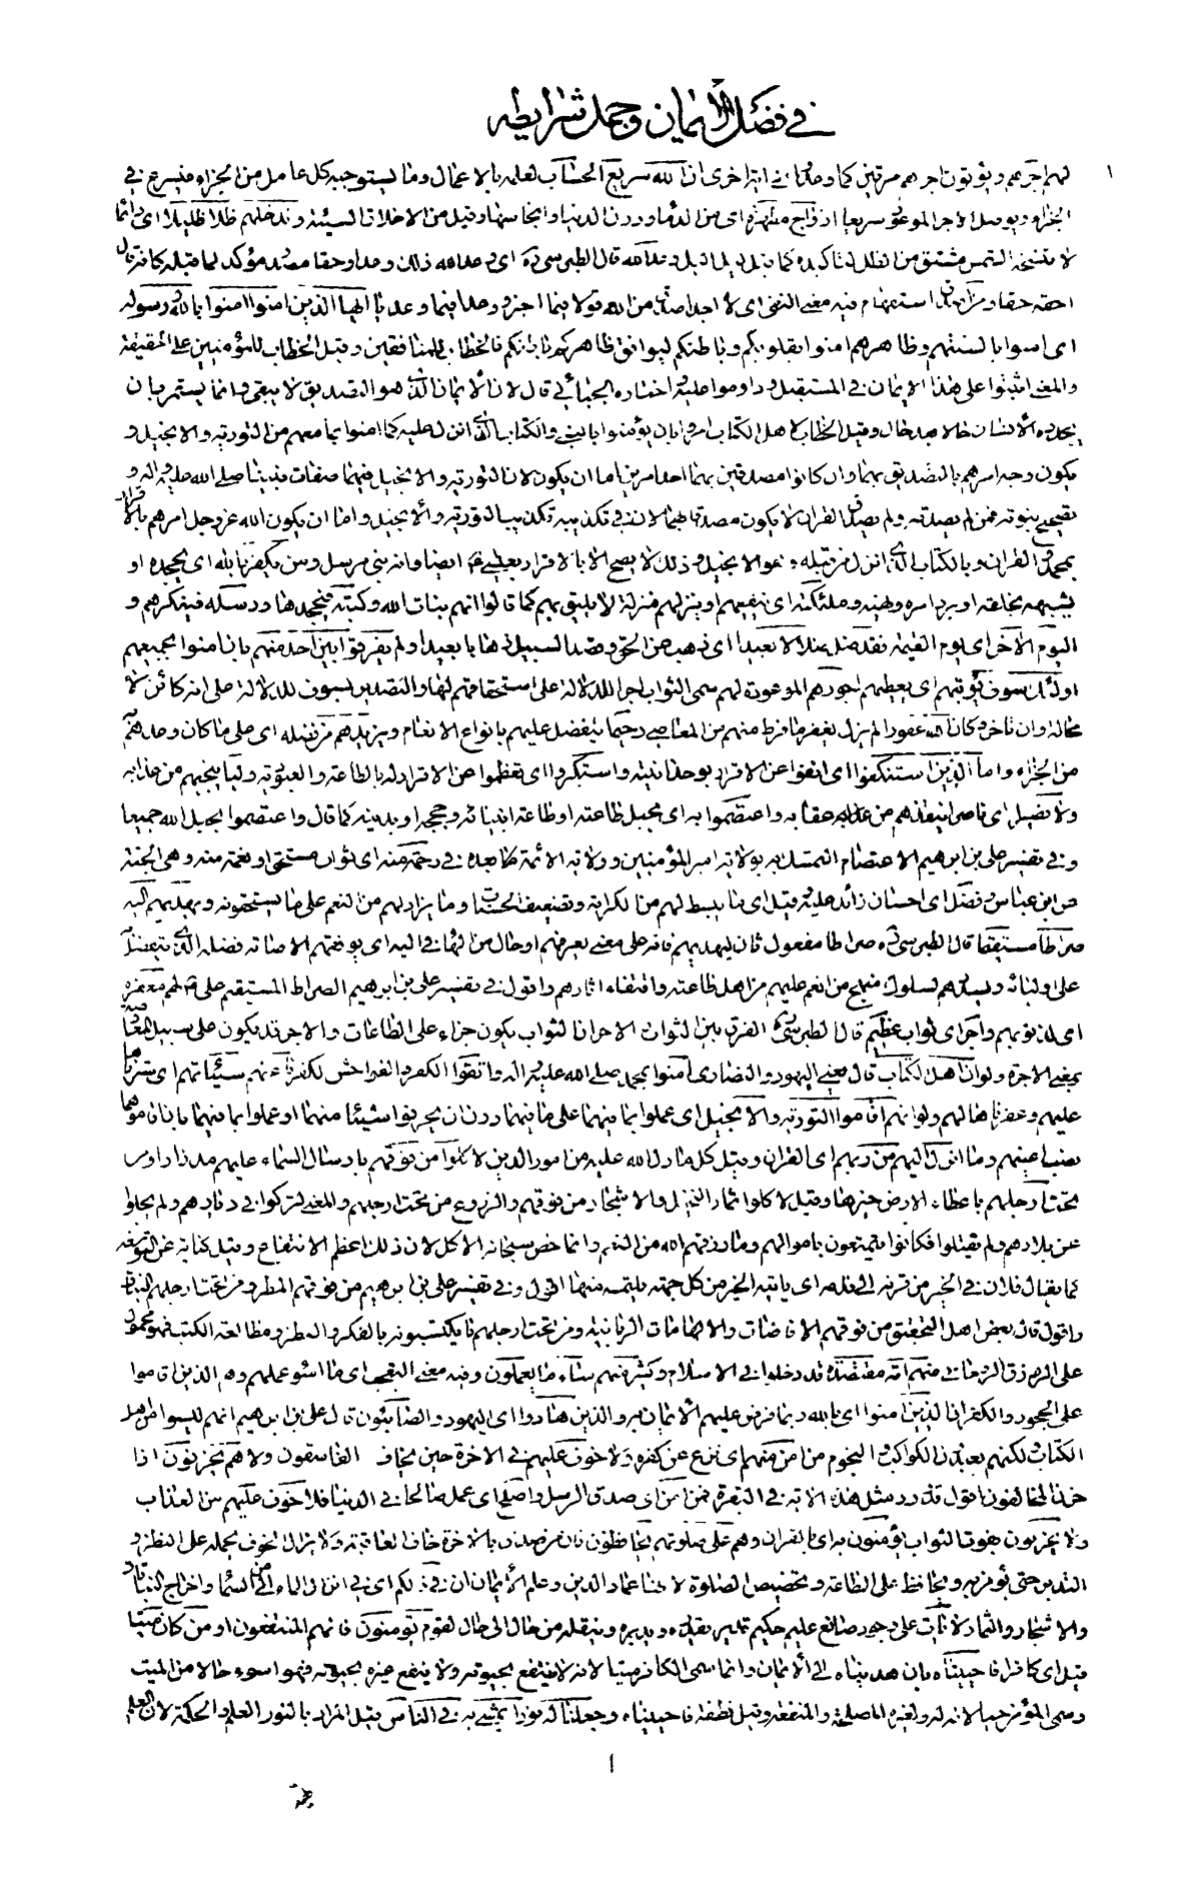 في فضل الإيمان وجمل شرايطه
١
لهم اجرهم ويؤتون اجرهم مرتين كما وعدوا في اية اخرى ان الله سريع الحساب لعلمه بالاعمال وما يستوجبه كل عامل من الجزاء فيسرع في
الجزاء ويوصل الاجر الموعود سريعا ازواج مطهرة اي من الدماء ودرن الدنيا وانجاسها وقيل من الاخلاق السيئة وندخلهم ظلا ظليلا اي دائما
لا تنسخه الشمس مشتق من الظل لتأكيده كما قيل ليل اليل وعد الله قال الطبرسي ره اي وعد الله ذلك وعدا وحقا مصدر مؤكد لما قبله كانه قال
احقه حقا ومن اصدق استفهام فيه معنى النفي اي لا احد اصدق من الله قولا فيما اخبر ووعدا فيما وعد يا ايها الذين امنوا امنوا بالله ورسوله
اي امنوا بالسنتهم وظاهرهم امنوا بقلوبكم وباطنكم ليوافق ظاهركم باطنكم فالخطاب للمنافقين وقيل الخطاب للمؤمنين على الحقيقة
والمعنى اثبتوا على هذا الايمان في المستقبل وداوموا عليه اختاره الجبائي قال لان الايمان الذي هو التصديق لا يبقى وانما يستمر بان
يجدده الانسان حالا بعد حال وقيل الخطاب لاهل الكتاب امروا بان يؤمنوا بالنبي والكتاب الذي انزل عليه كما امنوا بما معهم من التورية والانجيل و
يكون وجه امرهم بالتصديق بهما وان كانوا مصدقين بهما احد امرين اما ان يكون لان التورية والانجيل فيهما صفات نبينا صلى الله عليه واله و
تصحيح نبوته فمن لم يصدقه ولم يصدق القران لا يكون مصدقا لهما لان في تكذيبه تكذيب التورية والانجيل واما ان يكون الله عز وجل امرهم بالاقرار
بمحمد والقران وبالكتاب الذي انزل من قبله وهو الانجيل وذلك لا يصح الا بالاقرار بعيسى ايضا وانه نبي مرسل ومن يكفر بالله اي يجحده او
يشبهه بخلقه او يرد امره ونهيه وملئكته اي ينفيهم او ينزلهم منزلة لا يليق بهم كما قالوا انهم بنات الله وكتبه فيجحدها ورسله فينكرهم و
اليوم الآخر اي يوم القيمة فقد ضل ضلالا بعيدا اي ذهب عن الحق وقصد السبيل ذهابا بعيدا ولم يفرقوا بين احد منهم بان امنوا بجميعهم
اولئك سوف نؤتيهم اي نعطيهم اجورهم الموعودة لهم سمى الثواب اجرا للدلالة على استحقاقهم لها والتصدير بسوف للدلالة على انه كائن لا
محالة وان تاخر وكان الله غفورا لم يزل يغفر ما فرط منهم من المعاصي رحيما يتفضل عليهم بانواع الانعام ويزيدهم من فضله اي على ما كان وعدهم
من الجزاء واما الذين استنكفوا اي انفوا عن الاقرار بوحدانيته واستكبروا اي تعظموا عن الاقرار له بالطاعة والعبودية وليا ينجيهم من عذابه
ولا نصيرا اي ناصرا ينقذهم من عقابه واعتصموا به اي بحبل طاعته او طاعة انبيائه وحججه او بدينه كما قال واعتصموا بحبل الله جميعا
وفي تفسير علي بن ابرهيم الاعتصام التمسك بولاية امير المؤمنين وولاية الائمة بعده في رحمة منه اي ثواب مستحق او نعمة منه وهي الجنة
عن ابن عباس وفضل اي احسان زائد عليه قيل اي ما يبسط لهم من الكرامة وتضعيف الحسنات وما يزاد لهم من النعم على ما يستحقونه ويهديهم اليه
صراطا مستقيما قال الطبرسي ره صراطا مفعول ثان ليهديهم فانه على معنى يعرفهم او حال من الهاء في اليه اي يوفقهم لاصابة فضله الذي يتفضل
على اوليائه ويسددهم لسلوك منهج من انعم عليهم من اهل طاعته واقتفاء اثارهم واقول في تفسير علي بن ابرهيم الصراط المستقيم علي لهم مغفرة
اي لذنوبهم واجر اي ثواب عظيم قال الطبرسي ره الفرق بين الثواب والاجر ان الثواب يكون جزاء على الطاعات والاجر قد يكون على سبيل المعاوضة
بمعنى الاجرة ولو ان اهل الكتاب قال يعني اليهود والنصارى آمنوا بمحمد صلى الله عليه واله واتقوا الكفر والفواحش لكفرنا عنهم سيئاتهم اي سترناها
عليهم وغفرناها لهم ولو انهم اقاموا التورية والانجيل اي عملوا بما فيهما على ما فيهما دون ان يحرفوا شيئا منهما او عملوا بما فيهما بان اقاموهما
نصب اعينهم وما انزل اليهم من ربهم اي القران وقيل كل ما دل الله عليه من امور الدين لاكلوا من فوقهم بارسال السماء عليهم مدرارا ومن
تحت ارجلهم باعطاء الارض خيرها وقيل لاكلوا ثمار النخيل والاشجار من فوقهم والزروع من تحت ارجلهم والمعنى لتركوا في ديارهم ولم يجلوا
عن بلادهم ولم يقتلوا فكانوا يتمتعون باموالهم وما رزقهم الله من النعم وانما خص سبحانه الاكل لان ذلك اعظم الانتفاع وقيل كناية عن التوسعة
كما يقال فلان في الخير من قرنه الى قدمه اي ياتيه الخير من كل جهة يلتمسه منها اقول وفي تفسير علي بن ابرهيم من فوقهم المطر ومن تحت ارجلهم النبات
واقول قال بعض اهل التحقيق من فوقهم الافاضات والالهامات الربانية ومن تحت ارجلهم ما يكتسبونه بالفكر والنظر ومطالعة الكتب فهو محمول
على الرزق الروحاني منهم امة مقتصدة قد دخلوا في الاسلام وكثير منهم ساء ما يعملون وفيه معنى التعجب اي ما اسوء عملهم وهم الذين قاموا
على الجحود والكفر ان الذين امنوا اي بالله وبما فرض عليهم الايمان به والذين هادوا اي اليهود والصابئون قال علي بن ابرهيم انهم ليسوا من اهل
الكتاب لكنهم يعبدون الكواكب والنجوم من امن منهم اي نزع عن كفره ولا خوف عليهم في الاخرة حين يخاف الفاسقون ولا هم يحزنون اذا
حزن المخالفون اقول قد ورد مثل هذه الاية في البقرة فمن امن اي صدق الرسل واصلح اي عمل صالحا في الدنيا فلا خوف عليهم من العذاب
ولا يحزنون بفوت الثواب يؤمنون به اي بالقران وهم على صلوتهم يحافظون فان من صدق بالاخرة خاف العاقبة ولا يزال الخوف يحمله على النظر و
التدبر حتى يؤمن به ويحافظ على الطاعة وتخصيص الصلوة لانها عماد الدين وعلم الايمان ان في ذلكم اي في انزال الماء من السماء واخراج النبات
والاشجار والثمار لايات على وجود صانع عليم حكيم قدير يقدره ويدبره وينقله من حال الى حال لقوم يؤمنون فانهم المنتفعون او من كان ميتا
قيل اي كافرا فاحييناه بان هديناه الى الايمان وانما سمى الكافر ميتا لانه لا ينتفع بحيوته ولا ينفع غيره بحيوته فهو اسوء حالا من الميت
وسمى المؤمن حيا لانه له ولغيره المصلحة والمنفعة وقيل نطفة فاحييناه وجعلنا له نورا يمشي به في الناس قيل المراد بالنور العلم والحكمة لان العلم
١